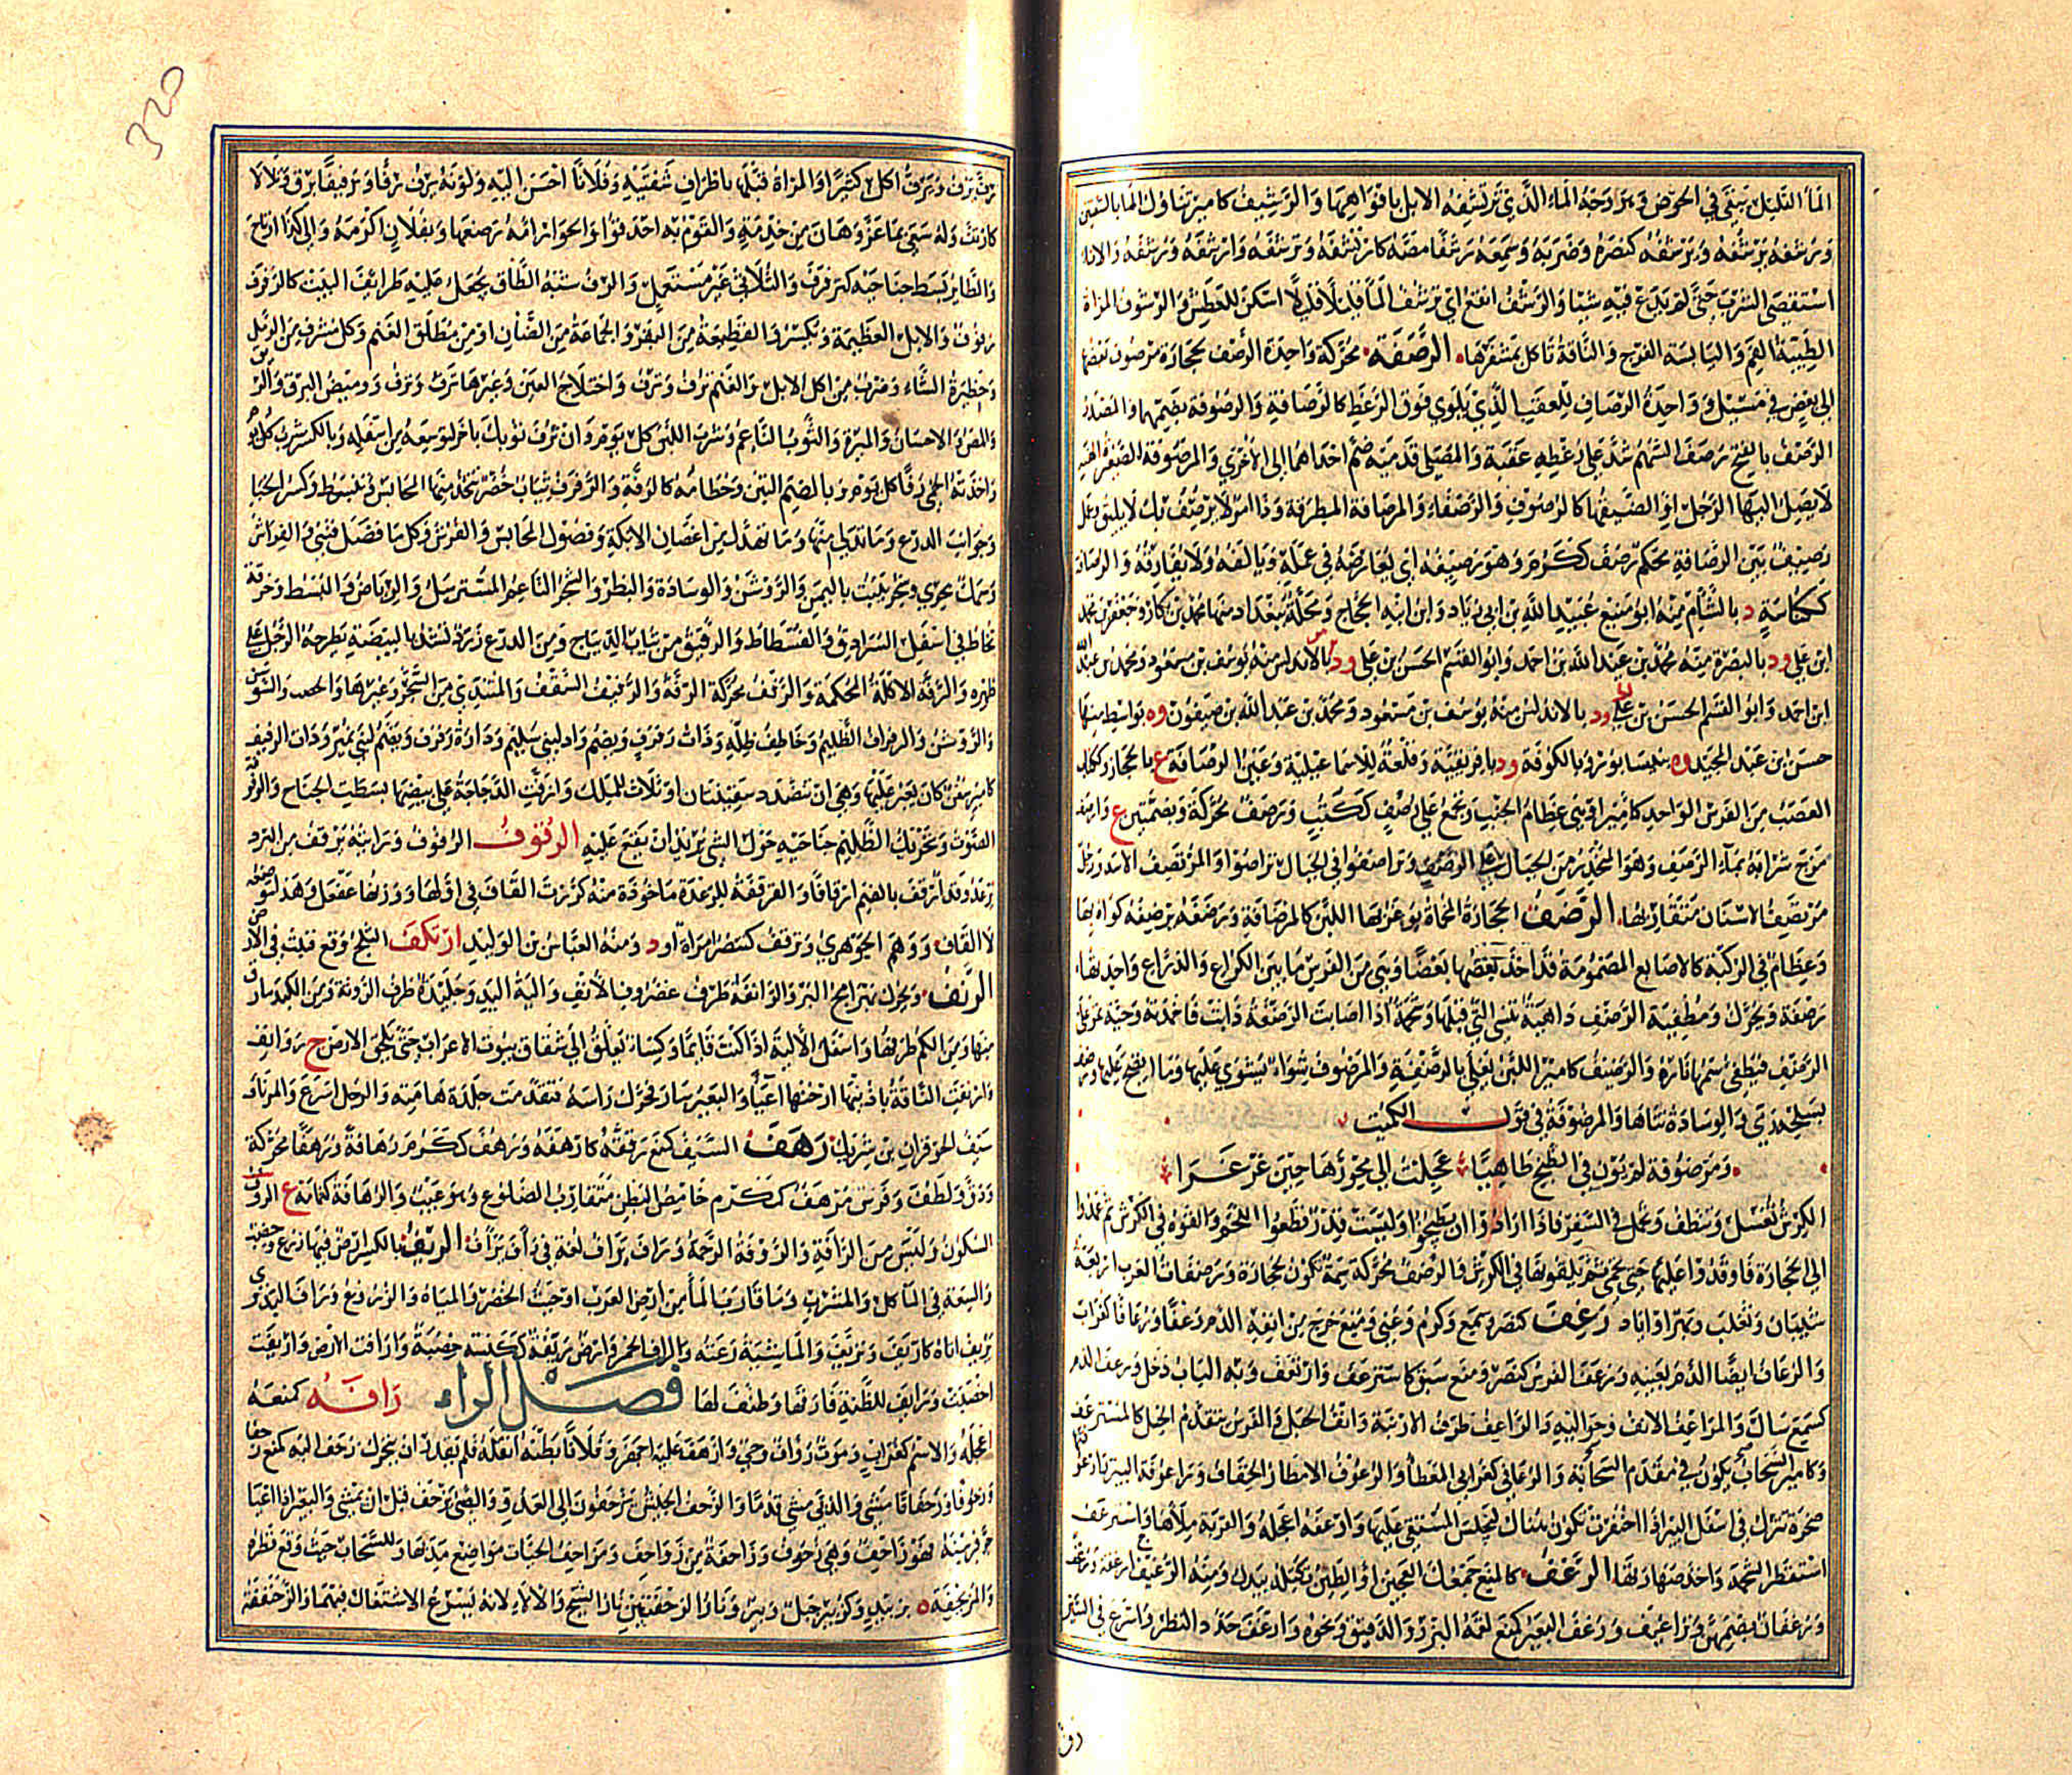 الماء القليل يبقى في الحوض ووجه الماء الذي ترتشفه الابل بافواهها والرشيف كامير تناول الماء بالشفتين
ورشفه يرشفه ويرشفه كنصره وضربه وسمعه رشفا مصه كارتشفه وترشفه وارشفه ورشفه والاناء
استقصى الشرب حتى لم يدع فيه شيئا والرشف انقع اي ترشف الماء قليلا قليلا اسكن للعطش والرشوف المراة
الطيبة الفم واليابسة الفرج والناقة تاكل بمشفرها الرصفة محركة واحدة الرصف لحجارة مرصوف بعضها
الى بعض في مسيل وواحدة الرصاف للعقب الذي يلوى فوق الرعظ كالرصافة والرصوفة بضمهما والمصدر
الرصف بالفتح رصف السهم شد على رعظه عقبة والمصلي قدميه ضم احداهما الى الاخرى والمرصوفة الصغيرة الهنة
لا يصل اليها الرجل او الضيقتها كالرصوف والرصفاء والمرصافة المطرقة وذا امر لا يرصف بك لا يليق وعمل
رصيف بين الرصافة محكم رصف ككرم وهو رصيفه اي يعارضه في عمله ويالفه ولا يفارقه والرصافة
ككناسة د بالشام منه ابو منيع عبيد الله بن ابي زياد وابن ابنه الحجاج ومحلة ببغداد منها محمد بن بكار وجعفر بن محمد
ابن علي ود بالبصرة منه محمد بن عبد الله بن احمد وابو القسم الحسن بن علي ود بالاندلس منه يوسف بن مسعود ومحمد بن عبد الله
ابن احمد وابو القسم الحسن بن علي ود بالاندلس منه يوسف بن مسعود ومحمد بن عبد الله بن صيفون وه بواسط منها
حسن بن عبد المجيد وه بنيسابور وبالكوفة ود بافريقية وقلعة للاسماعيلية وعين الرصافة ع بالحجاز وككتاب
العصب من الفرس الواحد كامير او هي عظام الجنب ويجمع على رصف ككتب ورصف محركة وبضمتين ع وارصف
مزج شرابه بماء الرصف وهو المنحدر من الجبال على الصخر وتراصفوا في الجبال تراصوا والمرتصف الاسد ورجل
مرتصف الاسنان متقاربها الرضف الحجارة المحماة يوغر بها اللبن كالمرضافة ورضفه يرضفه كواه بها
وعظام في الركبة كالاصابع المضمومة قد اخذ بعضها بعضا وهي من الفرس ما بين الكراع والذراع واحدتها
رضفة ويحرك ومطفية الرضف داهية تنسي التي قبلها وشحمة اذا اصابت الرضفة ذابت فاخمدته وحية تمر على
الرضف فيطفئ سمها ناره والرضيف كامير اللبن يغلى بالرضفة والمرضوف شواء يشوى عليها وما انضج عليها ورضف
بسلحه رمى والوسادة ثناها والمرضوفة في قول الكميت
ومرضوفة لم تؤن في الطبخ طاهيا عجلت الى محورها حين غرغرا
الكرش تغسل وتنظف وتحمل في السفر فاذا ارادوا ان يطبخوا وليست قدر قطعوا اللحم والقوه في الكرش ثم عمدوا
الى حجارة فاوقدوا عليها حتى تحمى ثم يلقونها في الكرش والرضف محركة سمة تكون بحجارة ورضفات العرب اربعة
شيبان وتغلب وبهراء واياد رعف كنصر وسمع وكرم وعني ومنع خرج من انفه الدم رعفا ورعافا كغراب
والرعاف ايضا الدم بعينه ورعف الفرس كنصر ومنع سبق كاسترعف وارتعف وبه الباب دخل ورعف الدم
كسمع سال والمراعف الانف وحواليه والراعف طرف الارنبة وانف الجبل والفرس يتقدم الخيل كالمسترعف
وكامير السحاب يكون في مقدم السحابة والرعافي كغرابي المعطاء والرعوف الامطار الخفاف وراعوفة البير وارعوفتها
صخرة تترك في اسفل البير اذا احتفرت تكون هناك ليجلس المستقي عليها وارعفه اعجله والقربة ملأها واسترعف
استقطر الشحمة واخذ صهارتها الرغف كالمنع جمعك العجين او الطين تكتله بيدك ومنه الرغيف ارغفة ورغف
ورغفان بضمهن وتراغيف ورغف البعير كمنع لقمه البزر والدقيق ونحوه وارغف حدد النظر واسرع في السير
رف
320
رف يرف ويرف اكل كثيرا والمراة قبلها باطراف شفتيه وفلانا احسن اليه ولونه يرف رفا ورفيفا برق وتلالا
كارتف وله سعى بما عز وهان من خدمة والقوم به احدقوا والحوار امه رضعها وبفلان اكرمه والى كذا ارتاح
والطائر بسط جناحيه كرفرف والثلاثي غير مستعمل والرف شبه الطاق يجعل عليه طرائف البيت كالرفرف
رفوف والابل العظيمة ويكسر والقطيعة من البقر والجماعة من الضان او من مطلق الغنم وكل مشرف من الرمل
وحظيرة الشاء وضرب من اكل الابل والغنم ترف وترف واختلاج العين وغيرها ترف وترف ووميض البرق والريق
والمص والاحسان والميرة والثوب الناعم وشرب اللبن كل يوم وان ترف ثوبك باخر لتوسعه من اسفله وبالكسر شرب كل يوم
واخذته الحمى رفا كل يوم وبالضم التبن وحطامه كالرفة والرفرف ثياب خضر تتخذ منها المحابس وتبسط وكسر الخباء
وجوانب الدرع وما تدلى منها وما تهدل من اغصان الايكة وفضول المحابس والفرش وكل ما فضل فثني والفراش
وسمك بحري وشجر ينبت باليمن والروشن والوسادة والبظر والشجر الناعم المسترسل والرياض والبسط وخرقة
تخاط في اسفل السرادق والفسطاط والرقيق من ثياب الديباج ومن الدرع زرد تشد بالبيضة يطرحه الرجل على
ظهره والرفة الاكلة المحكمة والرفف محركة الرقة والرفيف السقف والمتندي من الشجر وغيرها والخصب والسوسن
والروشن والرفراف الظليم وخاطف ظله وذات رفرف ويضم واد لبني سليم ودارة رفرف ويضم لبني نمير وذات الرفيف
كامير سفن كان يعبر عليها وهي ان تنضد سفينتان او ثلاث للملك وارفت الدجاجة على بيضها بسطت الجناح والرفرفة
الصوت وتحريك الظليم جناحيه حول الشئ يريد ان يقع عليه الرقوف الرفوف ورايته يرقف من البرد
يرعد وقد ارقف بالضم ارقافا والقرقفة للرعدة ماخوذة منه كررت القاف في اولها ووزنها عفعل وهذا موضعه
لا القاف ووهم الجوهري وترقف كتنصر امراة او د ومنه العباس بن الوليد ارتكف الثلج وقع فثبت في الارض
الرنف ويحرك بهرامج البر والرانفة طرف غضروف الانف والية اليد وجليدة طرف الروثة ومن الكبد ما رق
منها ومن الكم طرفها واسفل الالية اذا كنت قائما وكساء يعلق الى شقاق بيوت الاعراب حتى تلحق الارض ج روانف
وارنفت الناقة باذنيها ارختهما اعياء والبعير سار فحرك راسه فتقدمت جلدة هامته والرجل اسرع والمرناف
سيف الحوفزان بن شريك رهف السيف كمنع رققه كارهفه ورهف ككرم رهافة ورهفا محركة
ودق ولطف وفرس مرهف كمكرم خامص البطن متقارب الضلوع وهو عيب والرهافة كثمامة ع الروف
السكون وليس من الرافة والروفة الرحمة وراف يراف لغة في رأف يرأف الريف بالكسر ارض فيها زرع وخصب
والسعة في الماكل والمشرب وما قارب الماء من ارض العرب او حيث الخضر والمياه والزروع وراف البدوي
يريف اتاه كاريف وتريف والماشية رعته والراف الخمر وارض ريفة ككيسة خصبة وارافت الارض واريفت
اخصبت ورايف للظنة قارفها وطنف لها فصل الزاء زافه كمنعه
اعجله والاسم كغراب وموت زؤاف وحي وازهف عليه اجهز وفلانا بطنه اثقله فلم يقدر ان يتحرك زحف اليه كمنع زحفا
وزحوفا وزحفانا مشى والدبى مشى قدما والزحف الجيش يزحفون الى العدو والصبي يزحف قبل ان يمشي والبعير اذا اعيا
جر فرسنه فهو زاحف وهي زحوف وزاحفة من زواحف ومزاحف الحيات مواضع مدبها وللسحاب حيث وقع قطره
والمزيحفة ه بزبيد وكزبير جبل وبير ونار الزحفتين نار الشيح والالاء لانه يسرع الاشتعال فيهما والزحفقة